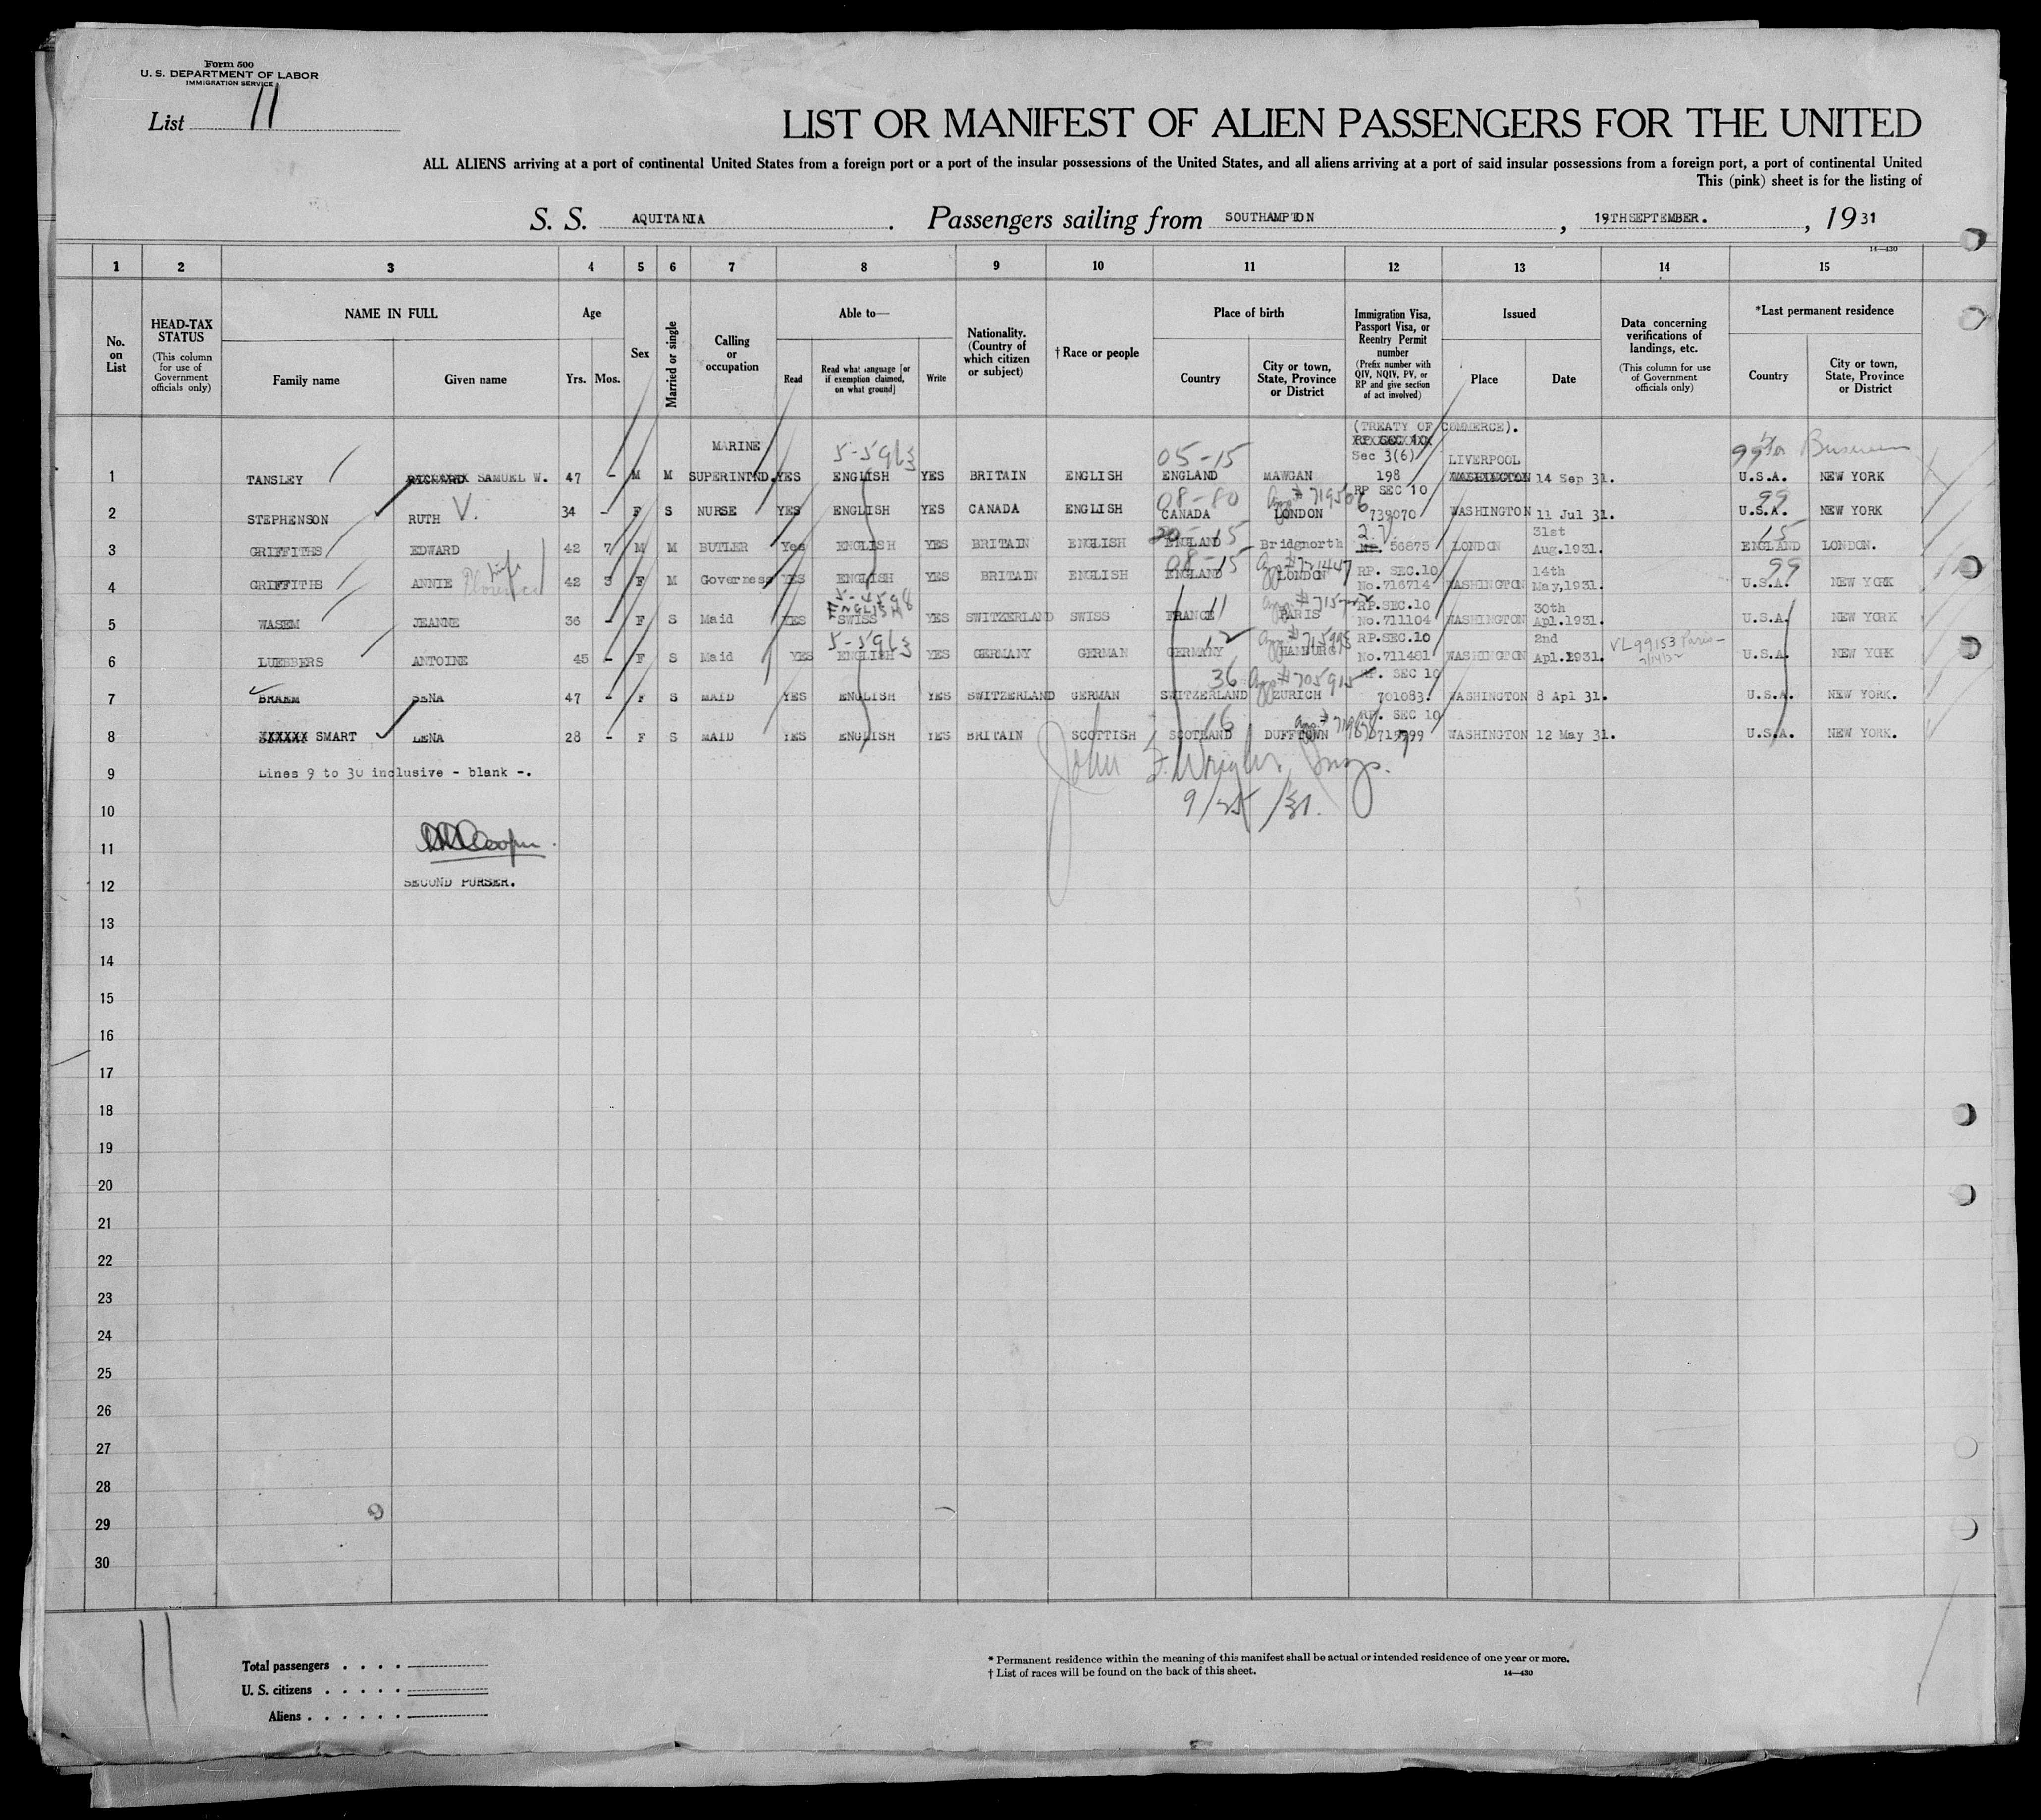 Form 500
U. S. DEPARTMENT OF LABOR
IMMIGRATION SERVICE
List 11
LIST OR MANIFEST OF ALIEN PASSENGERS FOR THE UNITED
ALL ALIENS arriving at a port of continental United States from a foreign port or a port of the insular possessions of the United States, and all aliens arriving at a port of said insular possessions from a foreign port, a port of continental United
This (pink) sheet is for the listing of
S. S. AQUITANIA. Passengers sailing from SOUTHAMPTON, 19THSEPTEMBER., 1931
14—430
1 2 3 4 5 6 7 8 9 10 11 12 13 14 15
No. on List
HEAD-TAX STATUS (This column for use of Government officials only)
NAME IN FULL Family name Given name
Age Yrs. Mos.
Sex
Married or single
Calling or occupation
Able to— Read Read what language [or if exemption claimed, on what ground] Write
Nationality. (Country of which citizen or subject)
†Race or people
Place of birth Country City or town, State, Province or District
Immigration Visa, Passport Visa, or Reentry Permit number (Prefix number with QIV, NQIV, PV, or RP and give section of act involved)
Issued Place Date
Data concerning verifications of landings, etc. (This column for use of Government officials only)
*Last permanent residence Country City or town, State, Province or District
MARINE 5-5963 05-15 (TREATY OF COMMERCE). Sec 3(6) LIVERPOOL 99
1 TANSLEY SAMUEL W. 47 - M M SUPERINTND. YES ENGLISH YES BRITAIN ENGLISH ENGLAND MAWGAN 198 WASHINGTON 14 Sep 31. U.S.A. NEW YORK
08-80 RP SEC 10 99
2 STEPHENSON RUTH V. 34 - F S NURSE YES ENGLISH YES CANADA ENGLISH CANADA LONDON 739070 WASHINGTON 11 Jul 31. U.S.A. NEW YORK
31st 15
3 GRIFFITHS EDWARD 42 7 M M BUTLER Yes ENGLISH YES BRITAIN ENGLISH ENGLAND Bridgnorth 56875 LONDON Aug.1931. ENGLAND LONDON.
wife 08-15 RP. SEC.10 14th 99
4 GRIFFITHS ANNIE 42 3 F M Governess YES ENGLISH YES BRITAIN ENGLISH ENGLAND LONDON No.716714 WASHINGTON May,1931. U.S.A. NEW YORK
ENGLISH 11 RP.SEC.10 30th
5 WASEM JEANNE 36 - F S Maid YES SWISS YES SWITZERLAND SWISS FRANCE PARIS No.711104 WASHINGTON Apl.1931. U.S.A. NEW YORK
5-5963 12 RP.SEC.10 2nd VL99153 Paris-
6 LUEBBERS ANTOINE 45 - F S Maid YES ENGLISH YES GERMANY GERMAN GERMANY HAMBURG No.711481 WASHINGTON Apl.1931. U.S.A. NEW YORK
36 # 705915 RP. SEC 10
7 BRAEM SENA 47 - F S MAID YES ENGLISH YES SWITZERLAND GERMAN SWITZERLAND ZURICH 701083. WASHINGTON 8 Apl 31. U.S.A. NEW YORK.
16 RP. SEC 10
8 XXXXXX SMART LENA 28 - F S MAID YES ENGLISH YES BRITAIN SCOTTISH SCOTLAND DUFFTOWN WASHINGTON 12 May 31. U.S.A. NEW YORK.
9 Lines 9 to 30 inclusive - blank -.
John F. Wright, Insp.
9/25/31.
10
11 Cooper
12 SECOND PURSER.
13
14
15
16
17
18
19
20
21
22
23
24
25
26
27
28
29
30
11
Total passengers
U. S. citizens
Aliens
* Permanent residence within the meaning of this manifest shall be actual or intended residence of one year or more.
† List of races will be found on the back of this sheet. 14—430